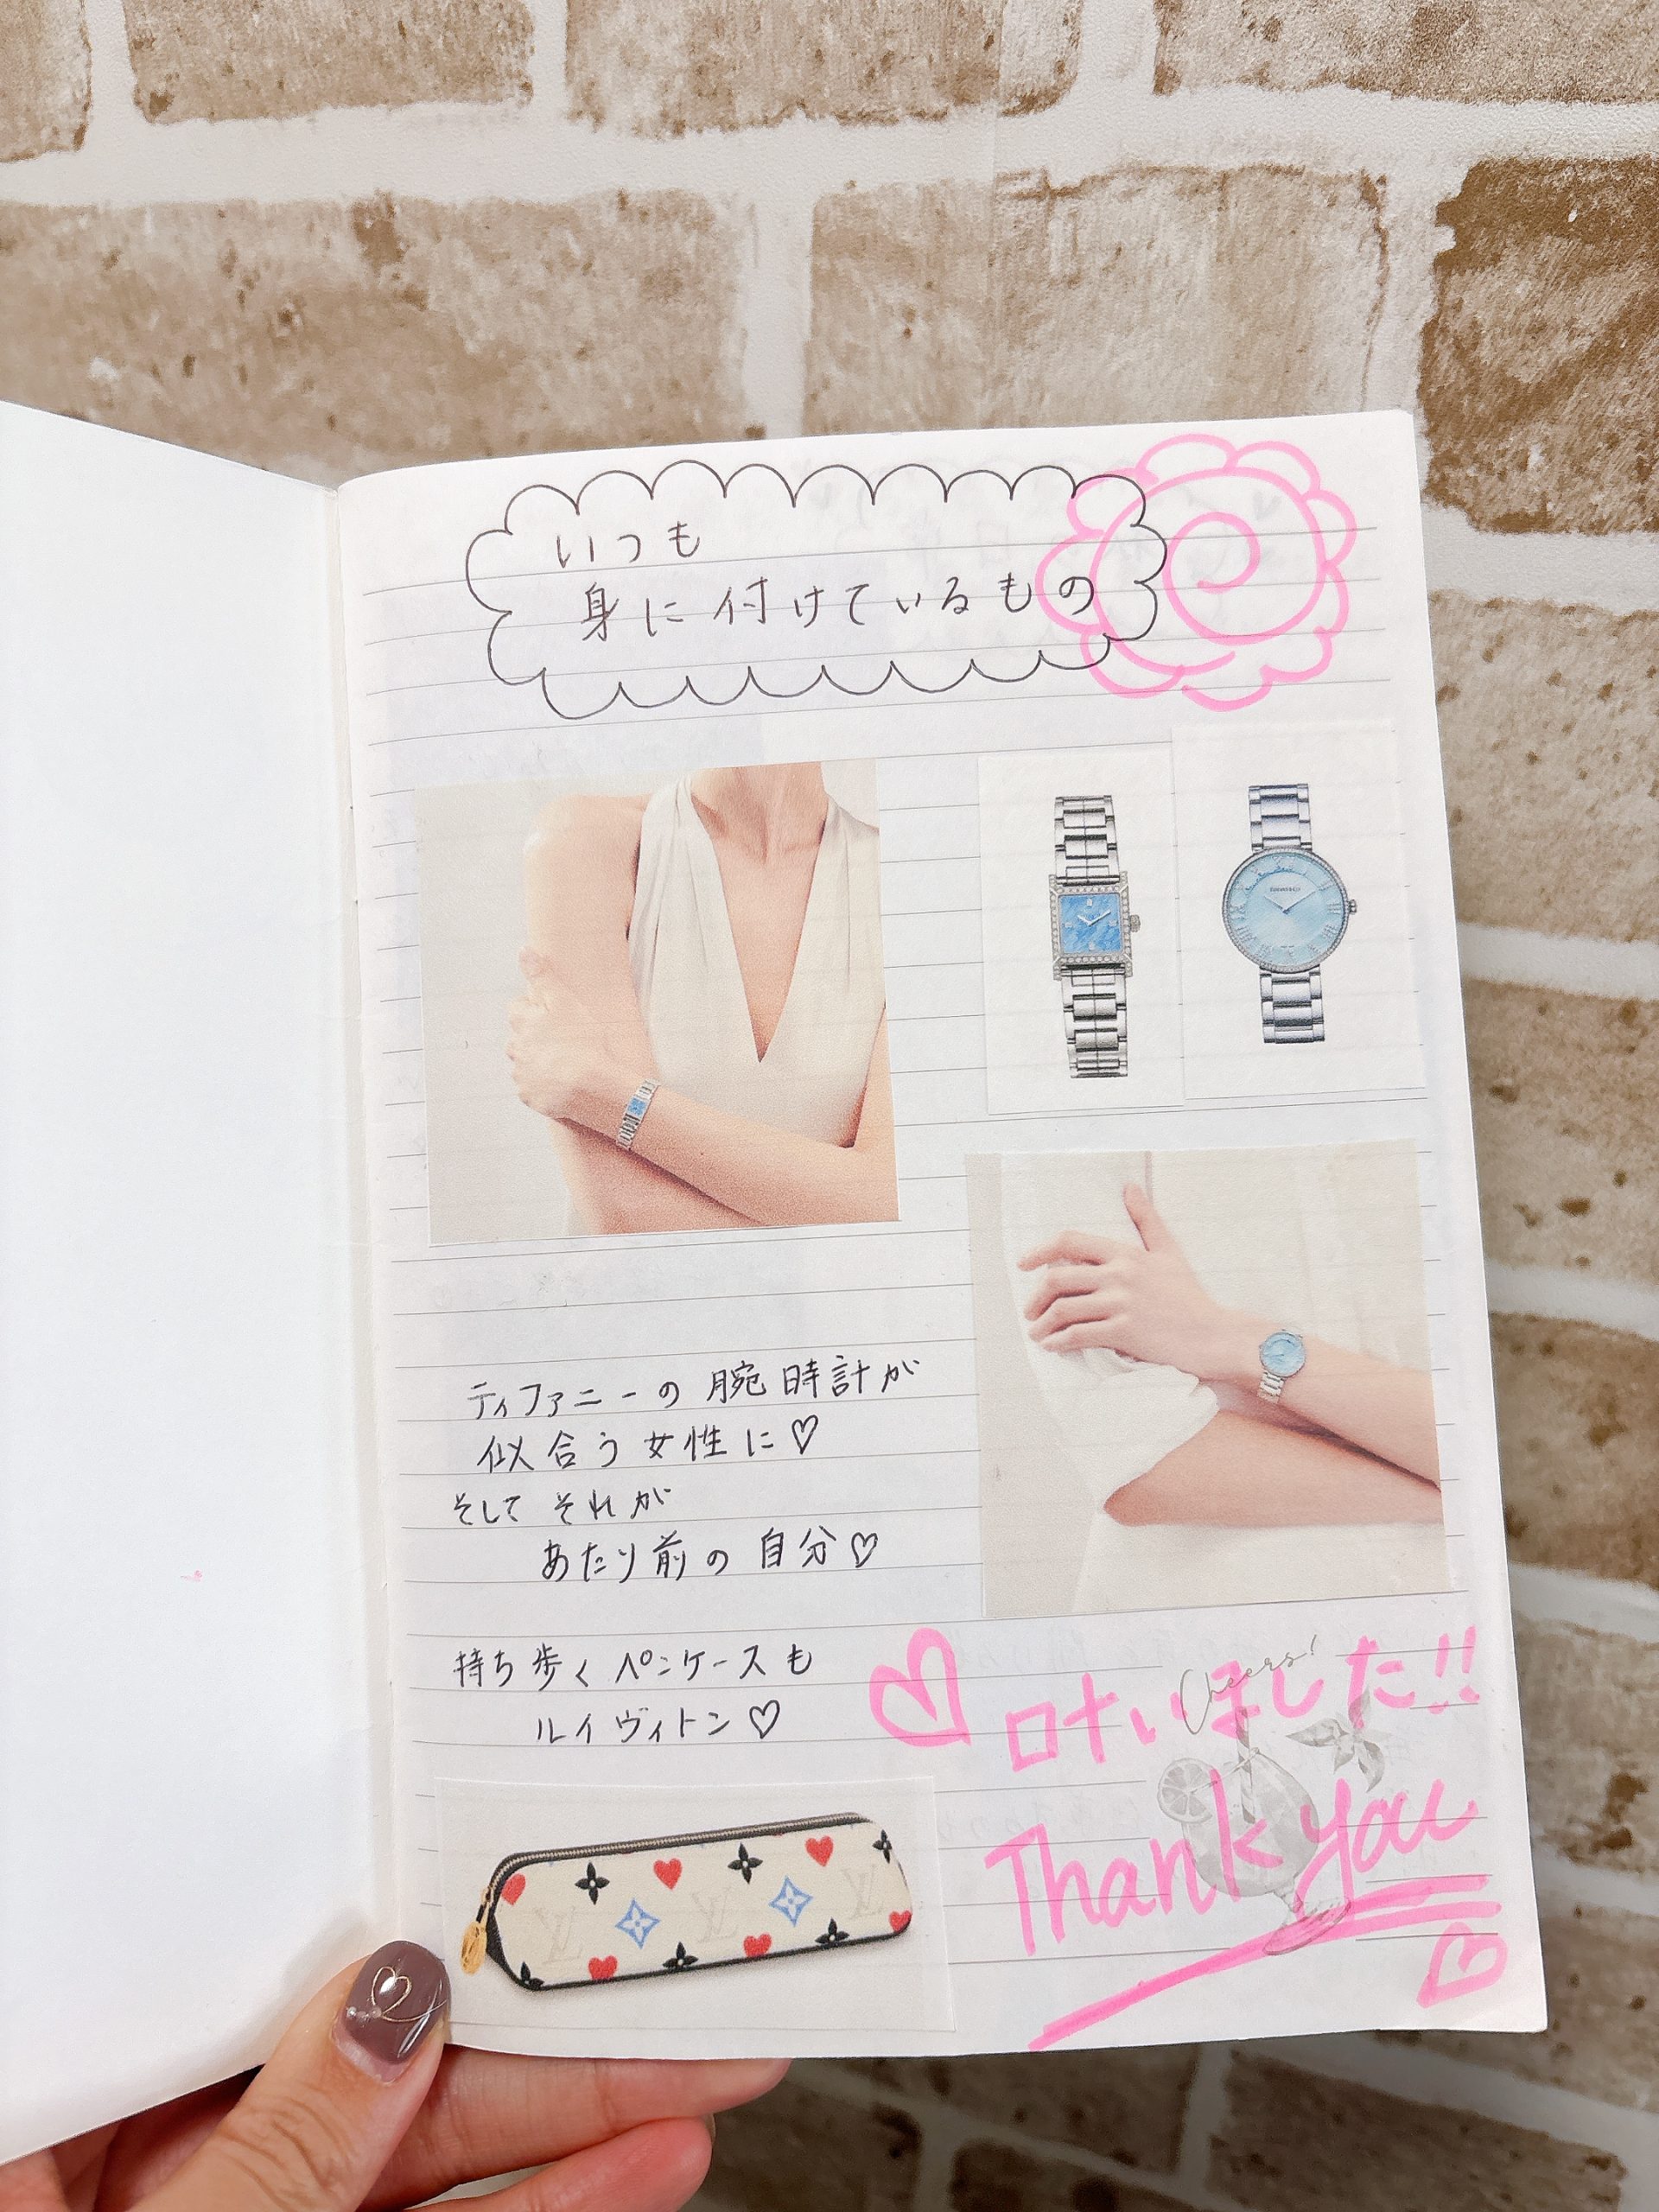 いつも
身に付けているもの
ティファニーの腕時計が
似合う女性に♡
そして それが
あたり前の自分♡
持ち歩くペンケースも
ルイヴィトン♡
Cheers!
叶いました!!
Thank you